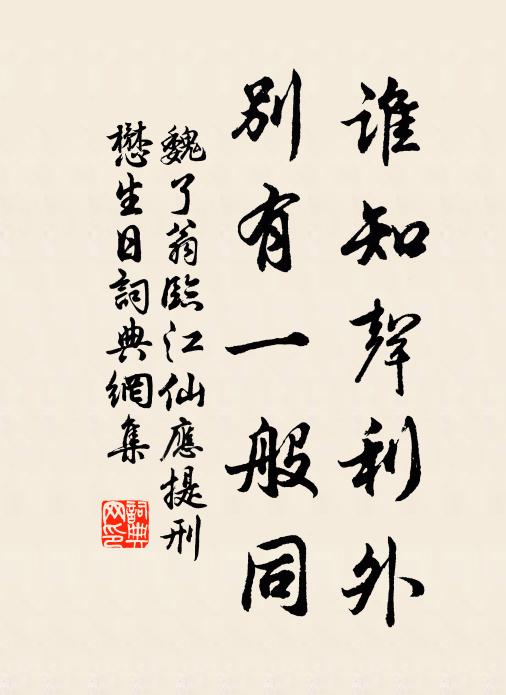 誰知聲利外
別有一般同
魏了翁臨江仙應提刑
懋生日詞典網集
詞典网印